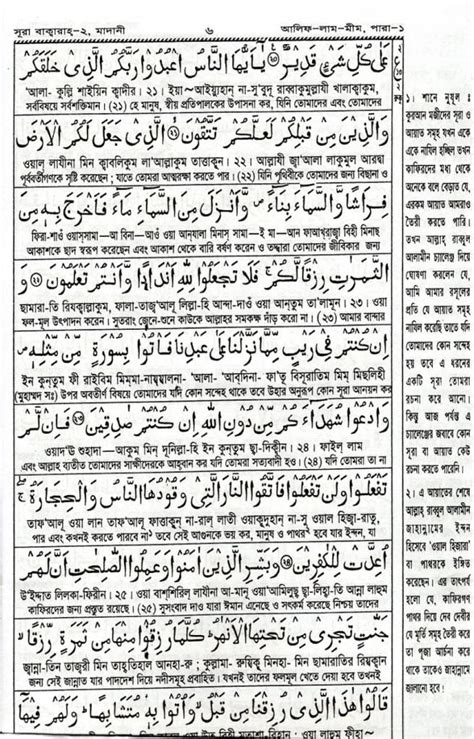 সূরা বাক্বারাহ্-২, মাদানী ৬ আলিফ-লাম-মীম, পারা-১
عَلٰى كُلِّ شَيْءٍ قَدِيْرٌ ﴿٢٠﴾ يٰۤاَيُّهَا النَّاسُ اعْبُدُوْا رَبَّكُمُ الَّذِيْ خَلَقَكُمْ
'আলা- কুল্লি শাইয়িন ক্বাদীর। (২১) ইয়া~আইয়্যুহান্ না-সু'বুদূ রাব্বাকুমুল্লাযী খালাক্বাকুম্,
সর্ববিষয়ে সর্বশক্তিমান। (২১) হে মানুষ, স্বীয় প্রতিপালকের উপাসনা কর, যিনি তোমাদের এবং তোমাদের
وَالَّذِيْنَ مِنْ قَبْلِكُمْ لَعَلَّكُمْ تَتَّقُوْنَ ﴿٢١﴾ الَّذِيْ جَعَلَ لَكُمُ الْاَرْضَ
ওয়াল্ লাযীনা মিন্ ক্বাবলিকুম্ লা'আল্লাকুম্ তাত্তাকূন্। ২২। আল্লাযী জ্বা'আলা লাকুমুল্ আরদ্বা
পূর্ববর্তীগণকে সৃষ্টি করেছেন; যাতে তোমরা আত্মরক্ষা করতে পার। (২২) যিনি পৃথিবীকে তোমাদের জন্য বিছানা ও
فِرَاشًا وَّالسَّمَآءَ بِنَآءً ۪ وَّاَنْزَلَ مِنَ السَّمَآءِ مَآءً فَاَخْرَجَ بِهٖ مِنَ
ফিরা-শাওঁ ওয়াস্সামা—আ বিনা—আওঁ ওয়া আন্যালা মিনাস্ সামা—ই মা—আন্ ফাআখ্রাজ্বা বিহী মিনাছ্
আকাশকে ছাদ স্বরূপ করেছেন এবং আকাশ থেকে বারি বর্ষণ করেন ও তদ্দ্বারা তোমাদের জীবিকার জন্য
الثَّمَرٰتِ رِزْقًا لَّكُمْ ۚ فَلَا تَجْعَلُوْا لِلّٰهِ اَنْدَادًا وَّاَنْتُمْ تَعْلَمُوْنَ ﴿٢٢﴾ وَاِنْ
ছামারা-তি রিয্ক্বাল্লাকুম্, ফালা-তাজ্'আলূ লিল্লা-হি আন্দা-দাওঁ ওয়া আন্তুম্ তা'লামূন্। ২৩। ওয়া
ফল-মূল উৎপাদন করেন। সুতরাং জেনে-শুনে কাউকে আল্লাহর সমকক্ষ দাঁড় করো না। (২৩) আমার বান্দার
كُنْتُمْ فِيْ رَيْبٍ مِّمَّا نَزَّلْنَا عَلٰى عَبْدِنَا فَاْتُوْا بِسُوْرَةٍ مِّنْ مِّثْلِهٖ ۪
ইন্ কুন্তুম্ ফী রাইবিম্ মিম্মা-নায্যাল্না- 'আলা- 'আব্দিনা- ফা'তূ বিসূরাতিম্ মিম্ মিছ্লিহী
(মুহাম্মদ সঃ) উপর অবতীর্ণ বিষয়ে তোমাদের যদি কোন সন্দেহ থাকে তবে উহার অনুরূপ কোন সূরা আনয়ন কর
وَادْعُوْا شُهَدَآءَكُمْ مِّنْ دُوْنِ اللّٰهِ اِنْ كُنْتُمْ صٰدِقِيْنَ ﴿٢٣﴾ فَاِنْ لَّمْ
ওয়াদ্'উ শুহাদা—আকুম্ মিন্ দূনিল্লা-হি ইন্ কুন্তুম্ ছা-দিক্বীন্। ২৪। ফাইল্ লাম্
এবং আল্লাহ্ ব্যতীত তোমাদের সাক্ষীদেরকে আহ্বান কর যদি তোমরা সত্যবাদী হও। (২৪) যদি তোমরা তা না
تَفْعَلُوْا وَلَنْ تَفْعَلُوْا فَاتَّقُوا النَّارَ الَّتِيْ وَقُوْدُهَا النَّاسُ وَالْحِجَارَةُ ۖ
তাফ্'আলূ ওয়া লান্ তাফ্'আলূ ফাত্তাকুন্ না-রাল্ লাতী ওয়াকূদুহান্ না-সু ওয়াল্ হিজ্বা-রাতু,
পার এবং কখনই করতে পারবে না, তবে সেই আগুনকে ভয় কর, মানুষ ও পাথর হবে যার ইন্ধন, যা
اُعِدَّتْ لِلْكٰفِرِيْنَ ﴿٢٤﴾ وَبَشِّرِ الَّذِيْنَ اٰمَنُوْا وَعَمِلُوا الصّٰلِحٰتِ اَنَّ لَهُمْ
উ'ইদ্দাত্ লিল্কা-ফিরীন্। ২৫। ওয়া বাশ্শিরিল্ লাযীনা আ-মানূ ওয়া'আমিলুছ্ ছা-লিহা-তি আন্না লাহুম্
কাফিরদের জন্য প্রস্তুত রয়েছে। (২৫) সুসংবাদ দাও যারা ঈমান এনেছে ও সৎকর্ম করেছে নিশ্চয় তাদের
جَنّٰتٍ تَجْرِيْ مِنْ تَحْتِهَا الْاَنْهٰرُ ؕ كُلَّمَا رُزِقُوْا مِنْهَا مِنْ ثَمَرَةٍ رِّزْقًا ۙ
জ্বান্না-তিন্ তাজ্বরী মিন্ তাহ্তিহাল্ আন্হা-রু; কুল্লামা- রুযিকূ মিন্হা- মিন্ ছামারাতির্ রিয্ক্বান্
জন্য সেই জান্নাত যার পাদদেশে দিয়ে নদীসমূহ প্রবাহিত। যখনই তাদের ফলমূল খেতে দেয়া হবে তখনই
قَالُوْا هٰذَا الَّذِيْ رُزِقْنَا مِنْ قَبْلُ ۙ وَاُتُوْا بِهٖ مُتَشَابِهًا ؕ وَلَهُمْ فِيْهَاۤ
১। শানে নুযূল ঃ
কুরআন মজীদের সূরা ও
আয়াত সমূহ যখন একে
একে নাযিল হচ্ছিল তখন
কাফিরদের মধ্য থেকে
অনেকে বলে বেড়াত যে,
এরকম আয়াত আমরাও
তৈরী করতে পারি।
তখন আল্লাহ্ রাব্বুল
আলামীন চ্যালেঞ্জ দিয়ে
ঘোষণা করলেন যে,
আমি আমার রাসূলের
প্রতি যে আয়াত সমূহ
নাযিল করেছি তাতে যদি
তোমাদের কোন সন্দেহ
হয় তবে এ ধরনের
একটি সূরা তোমরা
রচনা করে আনো।
কিন্তু আজ পর্যন্ত এ
চ্যালেঞ্জের জবাবে কোন
সূরা বা আয়াত কেউ
রচনা করতে পারেনি।
২। এ আয়াতের শেষে
আল্লাহ্ রাব্বুল আলামীন
জাহান্নামের ইন্ধন
হিসেবে 'ওয়াল হিজারা'
বা পাথরকে ইঙ্গিত
করেছেন। এর তাৎপর্য
হলো যে, কাফিরগণ
পাথর দিয়ে দেব দেবীর
যে মূর্তি সমূহ তৈরী করে
তা পূজা আর্চনা করে
থাকে তাকেও জাহান্নামে
জ্বালানো হবে।